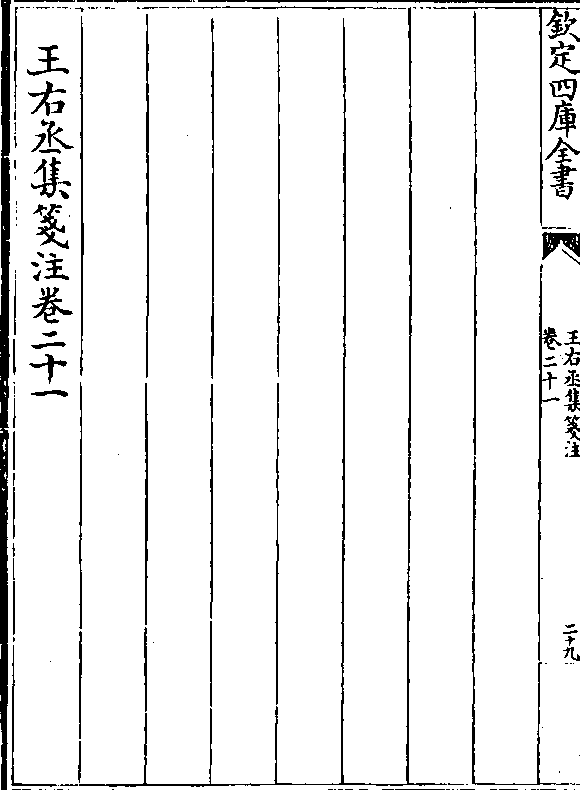 欽定四庫全書
王右丞集箋注
卷二十一
二十九
王右丞集箋注卷二十一